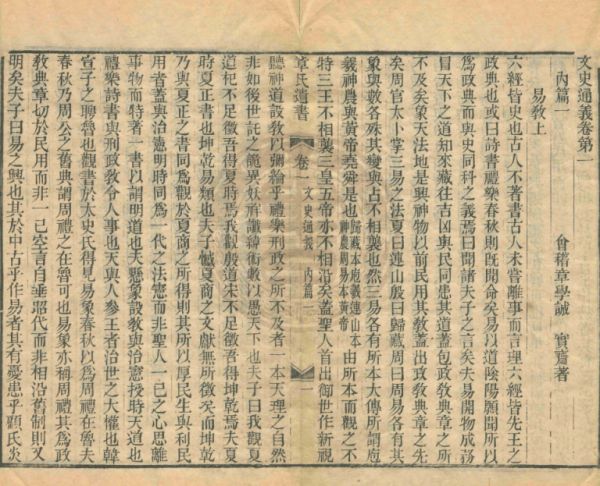 文史通義卷第一
內篇一　會稽章學誠　實齋著
易敎上
六經皆史也古人不著書古人未嘗離事而言理六經皆先王之
政典也或曰詩書禮樂春秋則旣聞命矣易以道陰陽願聞所以
爲政典而與史同科之義焉曰聞諸夫子之言矣夫易開物成務
冒天下之道知來藏往吉凶與民同患其道蓋包政敎典章之所
不及矣象天法地是興神物以前民用其敎蓋出政敎典章之先
矣周官太卜掌三易之法夏曰連山殷曰歸藏周曰周易各有其
象與數各殊其變與占不相襲也然三易各有所本大傳所謂庖
羲神農與黃帝堯舜是也歸藏本庖羲連山本神農周易本黃帝由所本而觀之不
特三王不相襲三皇五帝亦不相沿矣蓋聖人首出御世作新視
章氏遺書　卷一　文史通義　內篇一
聽神道設敎以彌綸乎禮樂刑政之所不及者一本天理之自然
非如後世託之詭異妖祥讖緯術數以愚天下也夫子曰我觀夏
道杞不足徵吾得夏時焉我觀殷道宋不足徵吾得坤乾焉夫夏
時夏正書也坤乾易類也夫子憾夏商之文獻無所徵矣而坤乾
乃與夏正之書同爲觀於夏商之所得則其所以厚民生與利民
用者蓋與治憲明時同爲一代之法憲而非聖人一己之心思離
事物而特著一書以謂明道也夫懸象設敎與治憲授時天道也
禮樂詩書與刑政敎令人事也天與人參王者治世之大權也韓
宣子之聘魯也觀書於太史氏得見易象春秋以爲周禮在魯夫
春秋乃周公之舊典謂周禮之在魯可也易象亦稱周禮其爲政
敎典章切於民用而非一己空言自垂昭代而非相沿舊制則又
明矣夫子曰易之興也其於中古乎作易者其有憂患乎顧氏炎